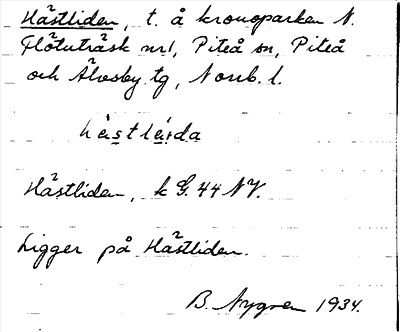 Hästliden, t. å kronoparken N.
Flötuträsk nr 1, Piteå sn, Piteå
och Älvsby tg, Norrb. l.
hästlɩ́da
Hästliden, k G. 44 NV.
Ligger på Hästliden.
B. Nygren 1934.